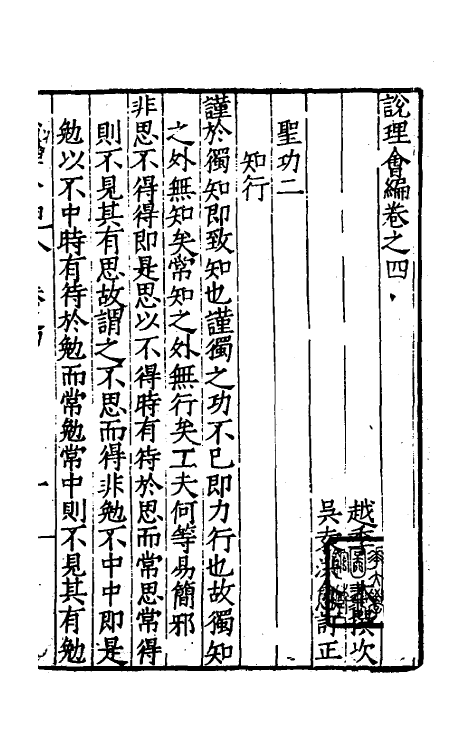 說理會編卷之四
越季本撰次
吳 訂正
聖功二
知行
謹於獨知即致知也謹獨之功不已即力行也故獨知
之外無知矣常知之外無行矣工夫何等易簡邪
非思不得得即是思以不得時有待於思而常思常得
則不見其有思故謂之不思而得非勉不中中即是
勉以不中時有待於勉而常勉常中則不見其有勉